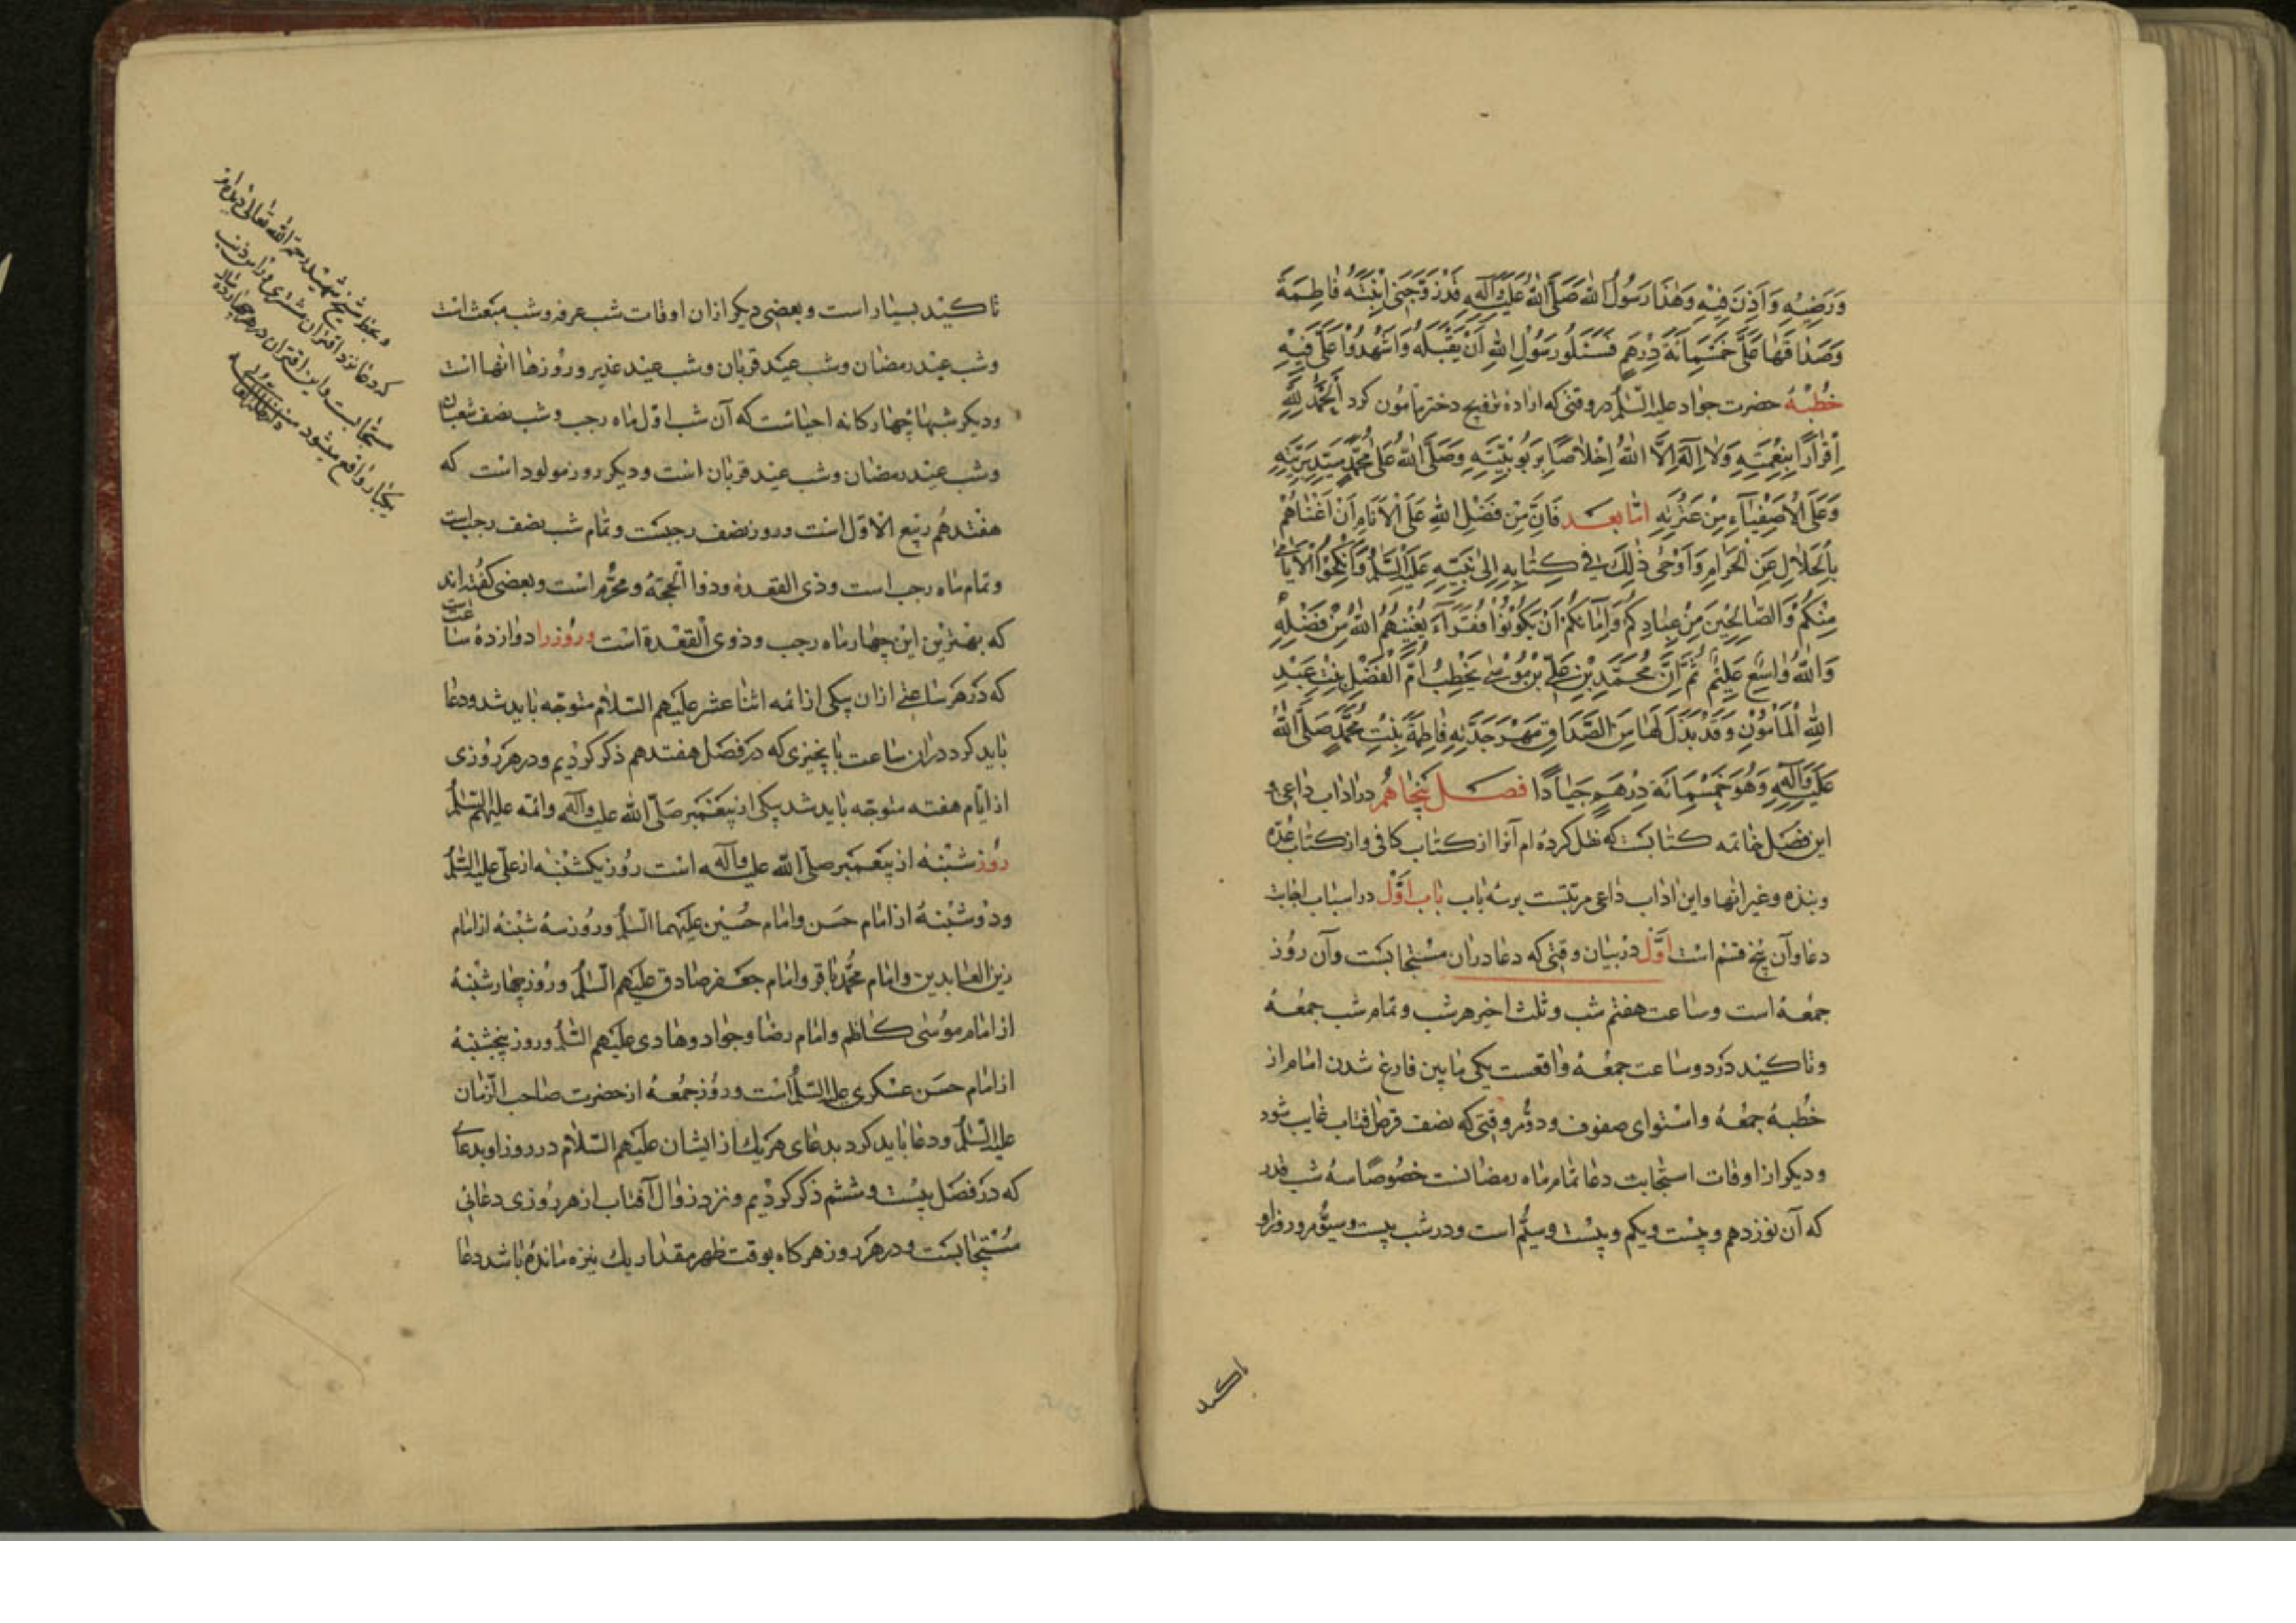 وَرَضِیَهُ وَاَذِنَ فِیْهِ وَهٰذَا رَسُولُ اللهِ صَلَّی اللهُ عَلَیْهِ وَآلِهِ قَدْ زَوَّجَنِی اِبْنَتَهُ فَاطِمَةَ
وَصَدَاقُهَا عَلَیَّ خَمْسُمِائَةَ دِرْهَمٍ فَسْئَلُو رَسُوْلَ اللهِ اَنْ یَقْبَلَهُ وَاشْهَدُوْا عَلَیَّ فِیْهِ
خُطْبهٔ حضرت جواد علیه السّلام در وقتی که ارادهٔ تزویج دختر مأمون کرد اَلْحَمْدُ لِلّهِ
اِقْرَارًا بِنِعْمَتِهِ وَلَا اِلٰهَ اِلَّا اللهُ اِخْلَاصًا بِرُبُوبِیَّتِهِ وَصَلَّی اللهُ عَلٰی مُحَمَّدٍ سَیِّدِ بَرِیَّتِهِ
وَعَلَی الْاَصْفِیَآءِ مِنْ عِتْرَتِهِ امّا بعد فَاِنَّ مِنْ فَضْلِ اللهِ عَلَی الْاَنَامِ اَنْ اَغْنَاهُمْ
بِالْحَلَالِ عَنِ الْحَرَامِ وَاَوْحٰی ذٰلِکَ فِی کِتَابِهِ اِلٰی نَبِیِّهِ عَلَیْهِ السَّلَامُ وَاَنْکِحُوا الْاَیَامٰی
مِنْکُمْ وَالصَّالِحِیْنَ مِنْ عِبَادِکُمْ وَاِمَائِکُمْ اَنْ یَکُوْنُوْا فُقَرَآءَ یُغْنِیْهُمُ اللهُ مِنْ فَضْلِهِ
وَاللهُ وَاسِعٌ عَلِیْمٌ ثُمَّ اِنَّ مُحَمَّدِ بْنِ عَلِیِّ بْنِ مُوْسٰی یَخْطِبُ اُمَّ الْفَضْلِ بِنْتِ عَبْدِ
اللهِ الْمَأْمُوْنِ وَقَدْ بَذَلَ لَهَا مِنَ الصَّدَاقِ مَهْرَ جَدَّتِهِ فَاطِمَةَ بِنْتِ مُحَمَّدٍ صَلَّی اللهُ
عَلَیْهِ وَآلِهِ وَهُوَ خَمْسُمِائَةَ دِرْهَمٍ جِیَادًا فصل پنجاهُم در اداب داعی و
این فصل خاتمه کتابست که نقل کرده‌ام آنرا از کتاب کافی و از کتاب عدّه
ونبذه وغیر انها و این اداب داعی مرتبست بر سه باب باب اوّل در اسباب اجابت
دعا و آن پنج قسم است اوّل در بیان وقتی که دعا در ان مستجابست و آن روز
جمعه است و ساعت هفتم شب و ثلث اخیر هر شب و تمام شب جمعه
و تاکید در دو ساعت جمعه واقعست یکی مابین فارغ شدن امام از
خطبهٔ جمعه و استوای صفوف و دوّم وقتی که نصف قرص افتاب غایب شود
و دیکر از اوقات استجابت دعا تمام ماه رمضانست خصوصا سه شب قدر
که آن نوزدهم و بیست و یکم و بیست و سیّم است و در شب بیست و سیّوم و روز او
تاکید
تاکید بسیار است و بعضی دیکر از ان اوقات شب عرفه و شب مبعث است
و شب عید رمضان و شب عید قربان و شب عید غدیر و روزها انها است
و دیکر شبها چهارکانه احیاست که آن شب اوّل ماه رجب و شب نصف شعبان
و شب عید رمضان و شب عید قربان است و دیکر روز مولود است که
هفتدهم ربیع الاوّل است و روز نصف رجبست و تمام شب نصف رجب است
و تمام ماه رجب است و ذی القعده و ذوا الحجّه و محرّم است و بعضی کفته‌اند
که بهترین این چهار ماه رجب و ذوی القعدة است و روز را دوازده ساعت
که در هر ساعتی از ان یکی از ائمه اثنا عشر علیهم السلام متوجّه باید شد و دعا
باید کرد در ان ساعت بانچیزی که در فصل هفتدهم ذکر کردیم و در هر روزی
از ایّام هفته متوجّه باید شد یکی از پیغمبر صلّی الله علیه وآله وائمه علیهم السّلام
روز شنبه از پیغمبر صلّی الله علیه وآله است روز یکشنبه از علی علیه السّلام
و دوشنبه از امام حسن و امام حسین علیهما السّلام و روز سه شنبه از امام
زین العابدین و امام محمّد باقر و امام جعفر صادق علیهم السّلام و روز چهارشنبه
از امام موسی کاظم و امام رضا و جواد و هادی علیهم السّلام و روز پنجشنبه
از امام حسن عسکری علیه السّلام است و روز جمعه از حضرت صاحب الزّمان
علیه السّلام و دعا باید کرد بدعای هر یک از ایشان علیهم السّلام در روز او بدعای
که در فصل بیست و ششم ذکر کردیم و نزد زوال آفتاب از هر روزی دعائی
مستجابست و در هر روز هرکاه بوقت ظهر مقدار یک نیزه مانده باشد دعا
و بخط شیخ شهید رحمه الله تعالی
کرد دعا نزد اقتران مشتری و راس ذنب
مستجاب است و این اقتران در هر چهارده سال
یکبار واقع میشود